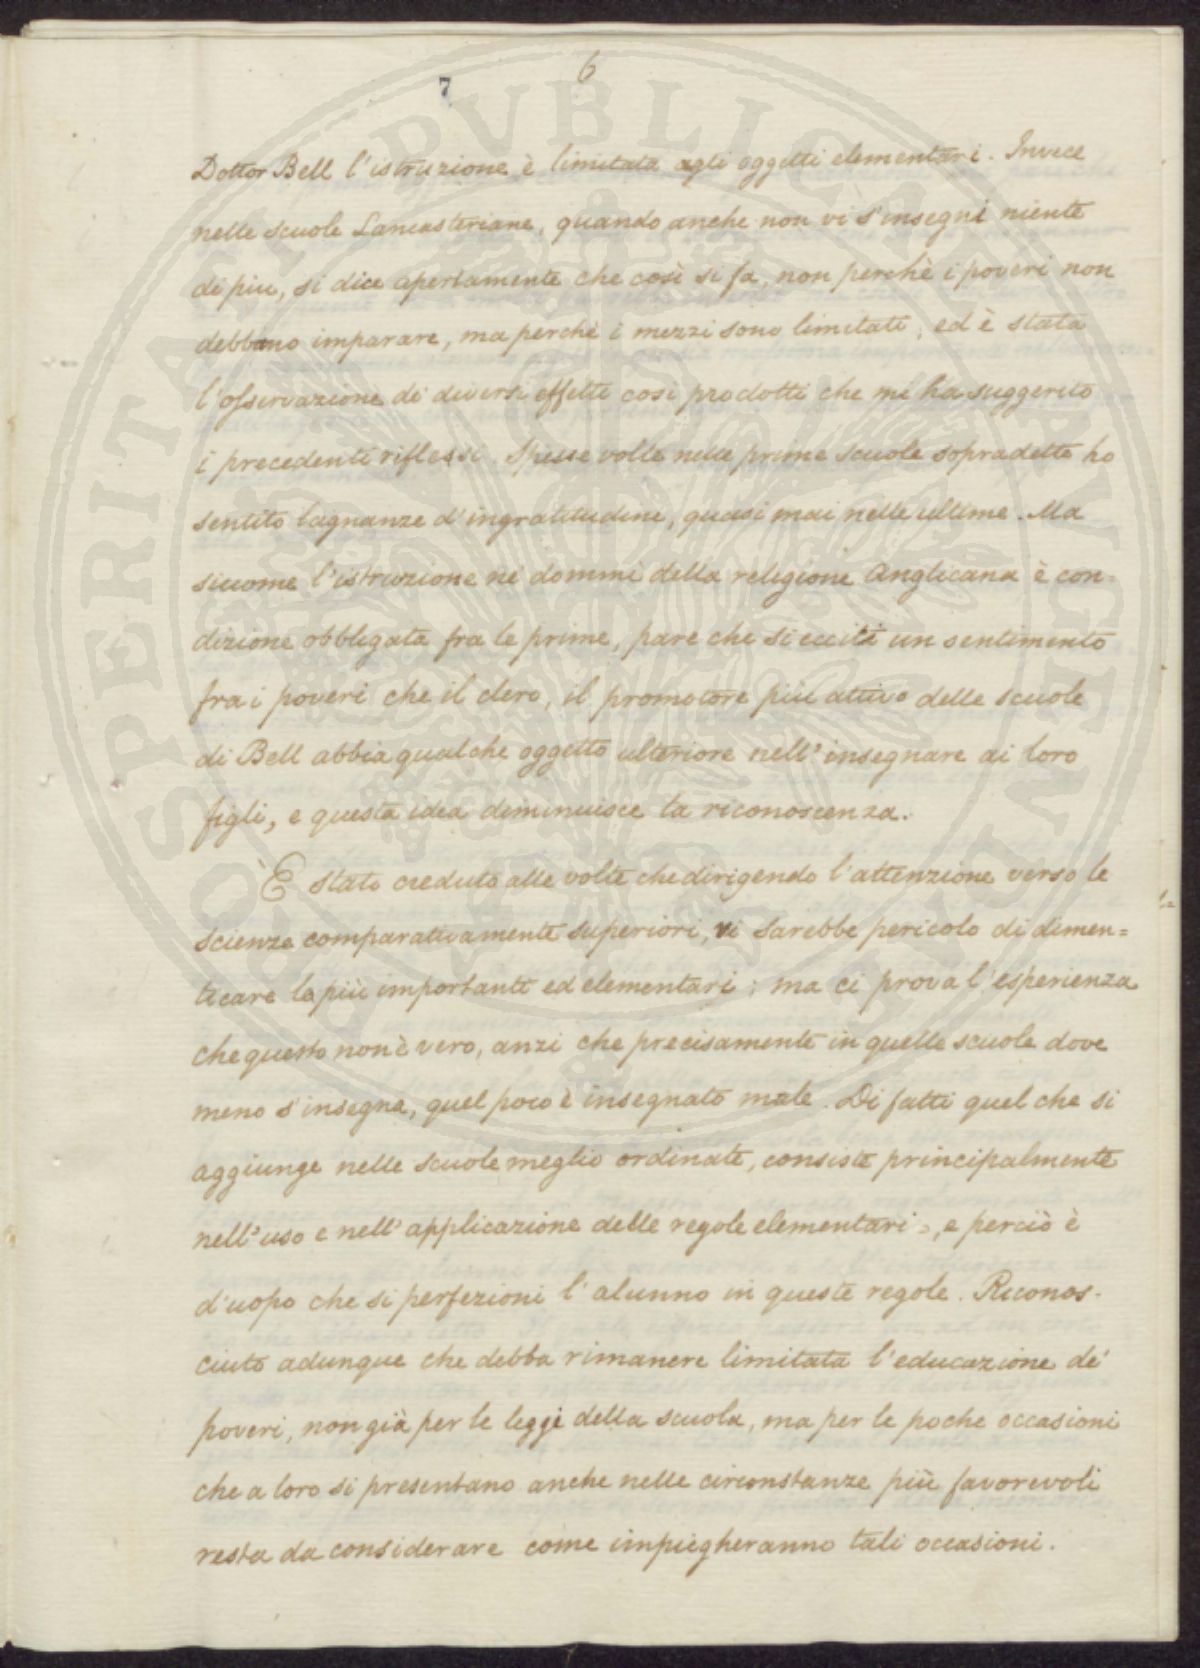 6
7
Dottor Bell l'istruzione è limitata agli oggetti elementari. Invece
nelle scuole Lancasteriane, quando anche non vi s'insegni niente
di piu, si dice apertamente che così si fa, non perchè i poveri non
debbano imparare, ma perchè i mezzi sono limitati, ed è stata
l'osservazione di diversi effetti così prodotti che mi ha suggerito
i precedenti riflessi. Spesse volte nelle prime scuole sopradette ho
sentito lagnanze d'ingratitudine, quasi mai nelle ultime. Ma
siccome l'istruzione ne' dommi della religione Anglicana è con=
dizione obbligata fra le prime, pare che si ecciti un sentimento
fra i poveri che il clero, il promotore più attivo delle scuole
di Bell abbia qualche oggetto ulteriore nell'insegnare ai loro
figli, e questa idea diminuisce la riconoscenza.
È stato creduto alle volte che dirigendo l'attenzione verso le
scienze comparativamente superiori, vi sarebbe pericolo di dimen=
ticare le più importanti ed elementari; ma ci prova l'esperienza
che questo non è vero, anzi che precisamente in quelle scuole dove
meno s'insegna, quel poco è insegnato male. Di fatti quel che si
aggiunge nelle scuole meglio ordinate, consiste principalmente
nell'uso e nell'applicazione delle regole elementari, e perciò è
d'uopo che si perfezioni l'alunno in queste regole. Riconos-
ciuto adunque che debba rimanere limitata l'educazione de'
poveri, non già per le leggi della scuola, ma per le poche occasioni
che a loro si presentano anche nelle circonstanze più favorevoli
resta da considerare come impiegheranno tali occasioni.
PROSPERITATI PUBLICAE AUGENDAE